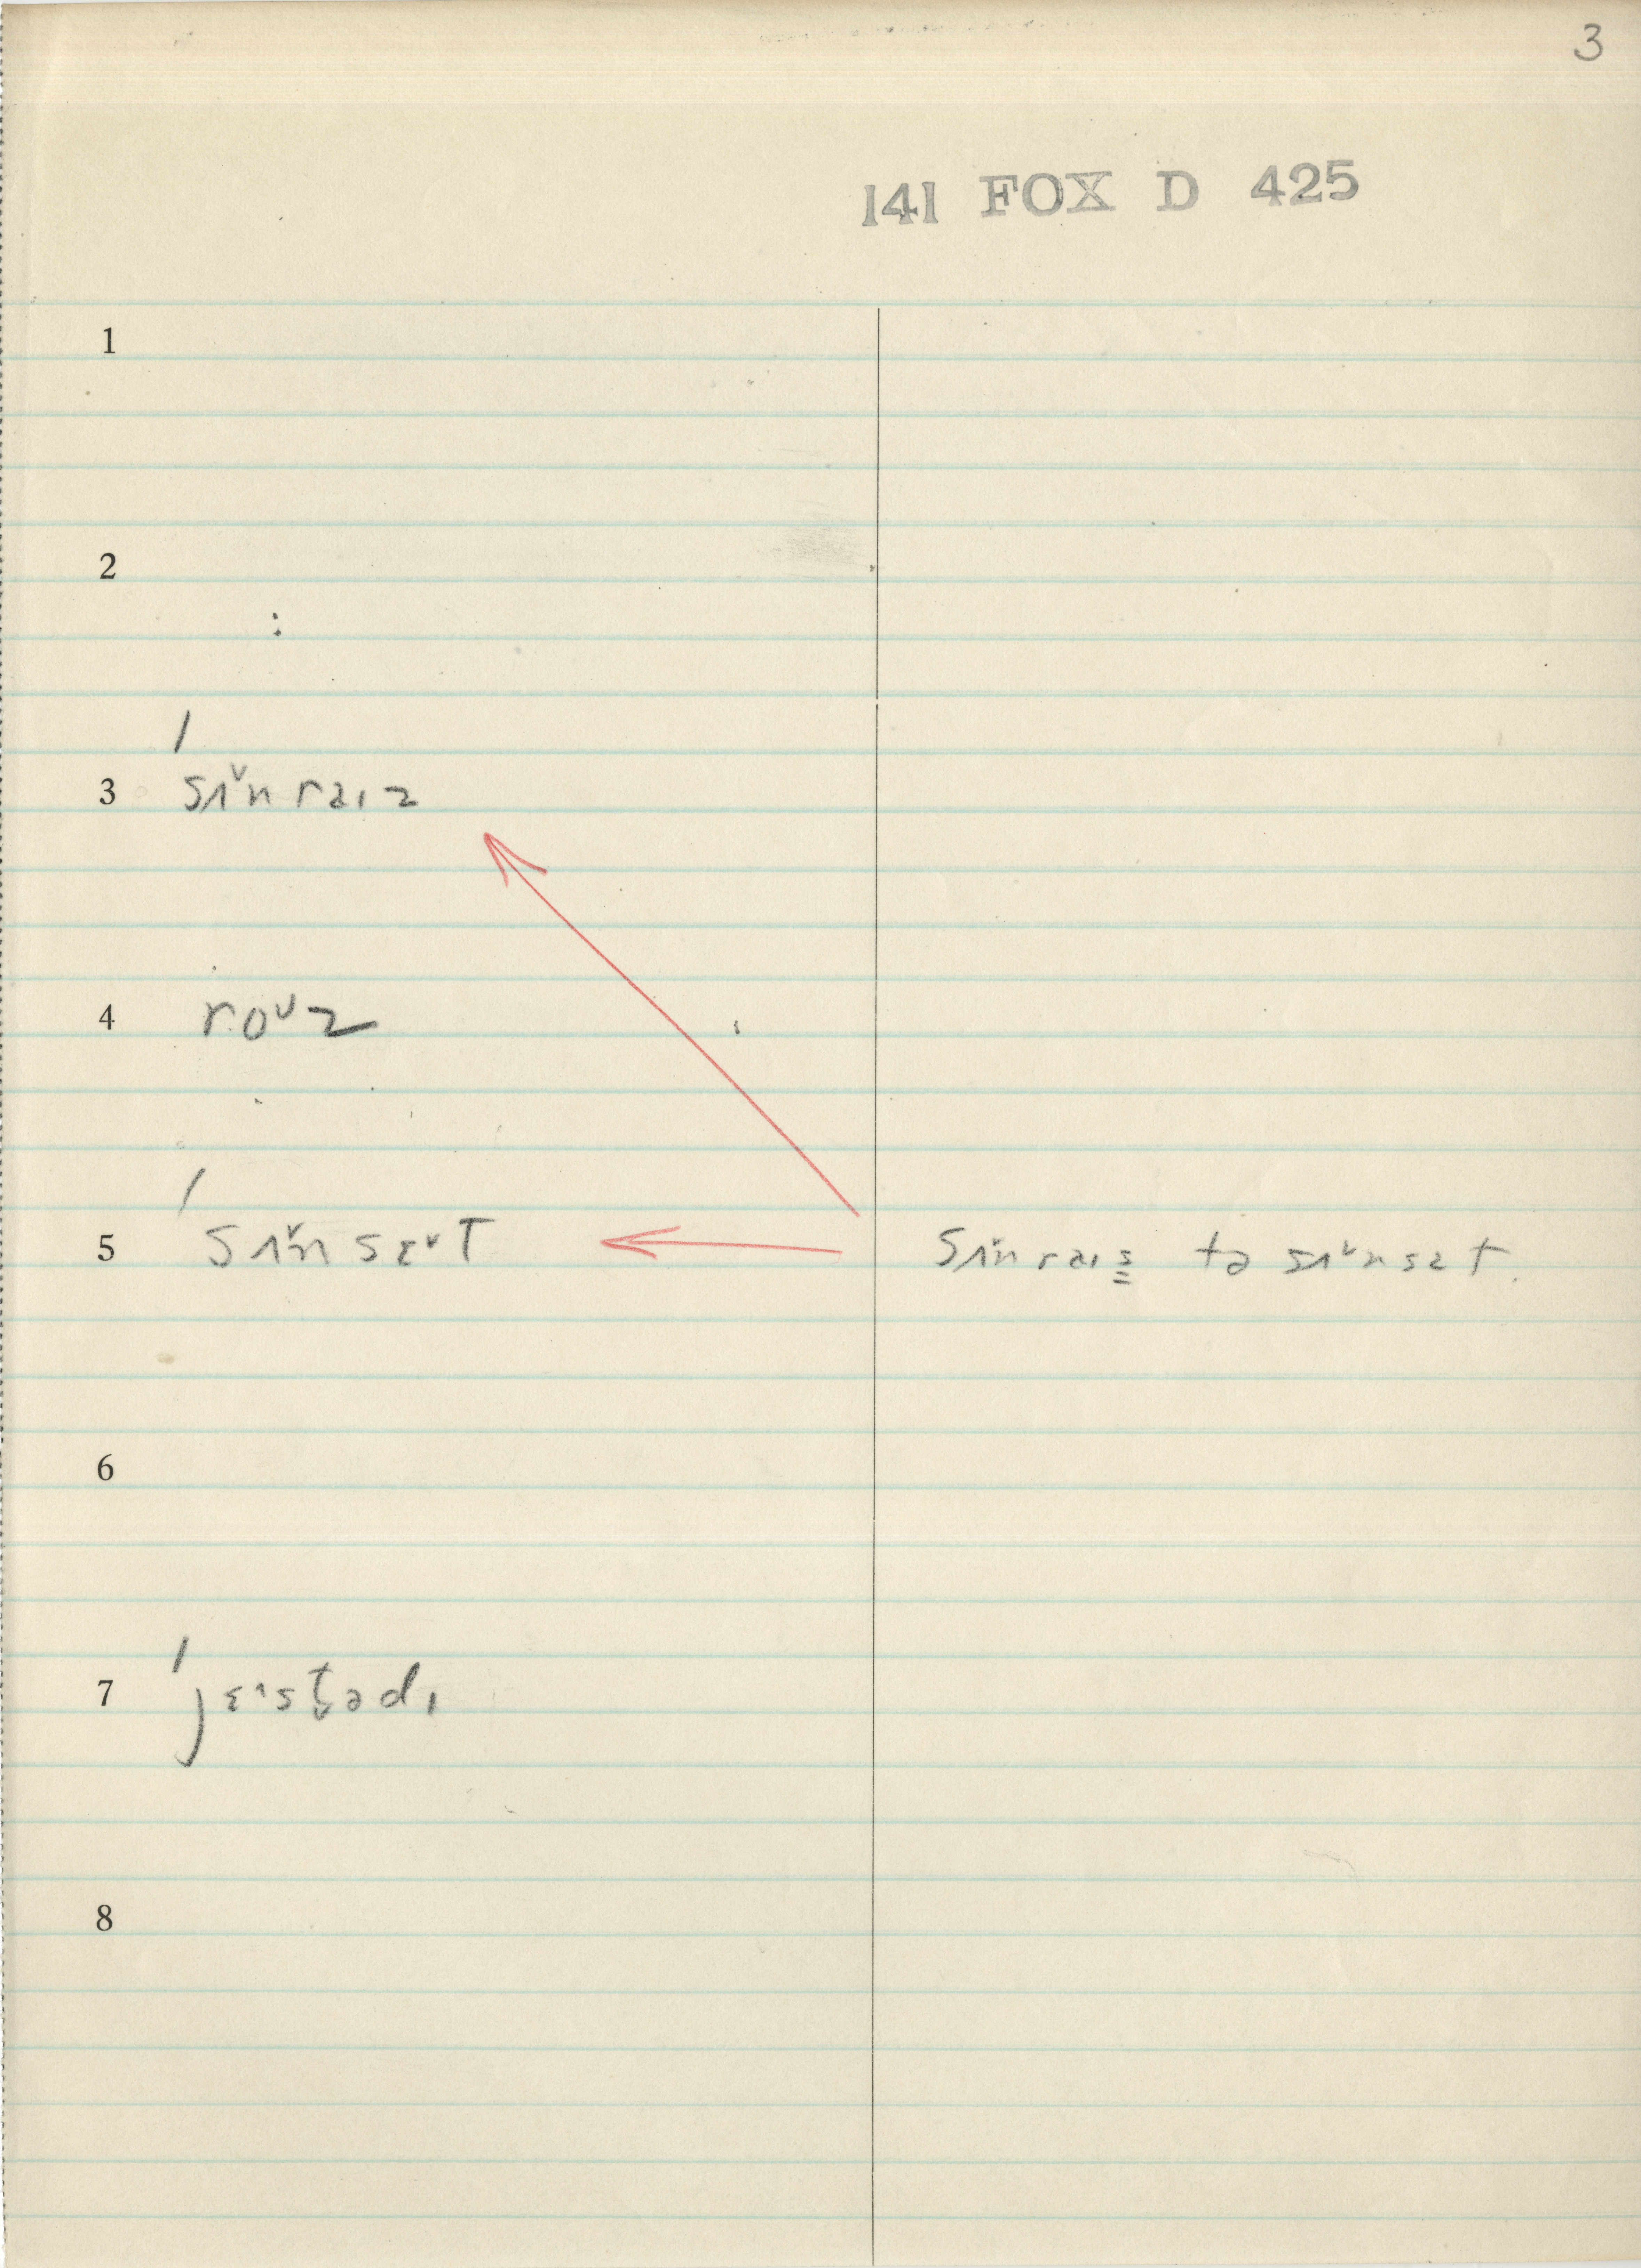 3
141 FOX D 425
1
2
3 ˈsʌˇnraɪz
4 roᴜz
5 ˈsʌˇnsɛˇt sʌˇnraɪs̳ tə sʌˇnsɛt.
6
7 ˈjɛ˄st̬ədɪ
8